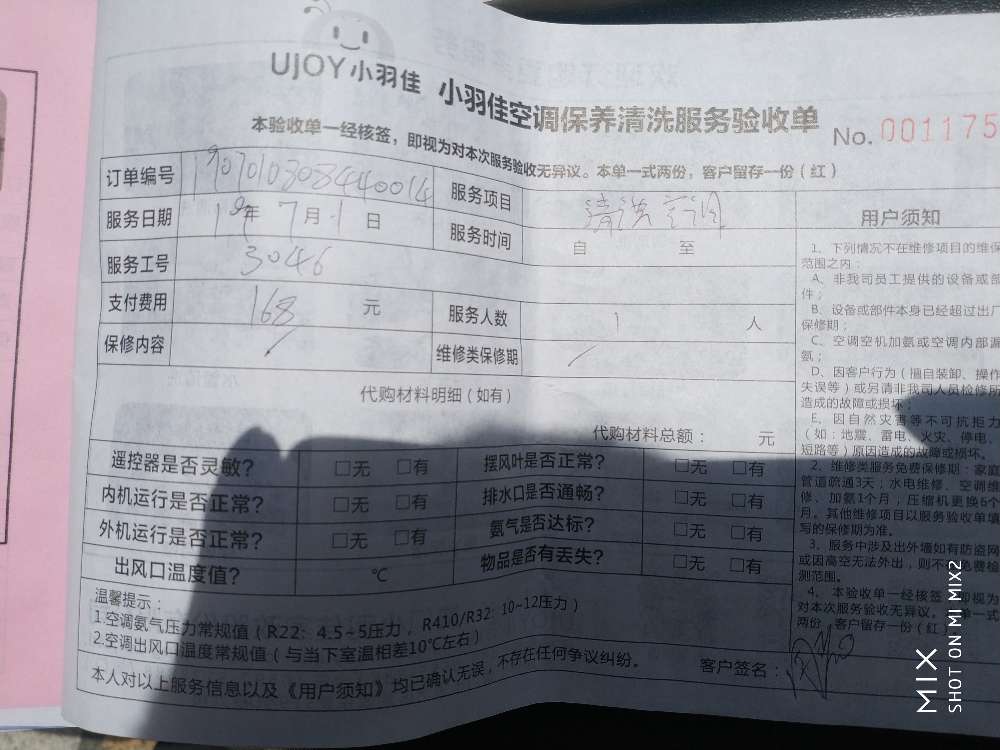 UJOY小羽佳 小羽佳空调保养清洗服务验收单
No. 001175
本验收单一经核签，即视为对本次服务验收无异议。本单一式两份，客户留存一份（红）
订单编号 服务项目 清洗空调
服务日期 19年 7月 1日 服务时间 自 至
服务工号 3046
支付费用 168 元 服务人数 1 人
保修内容 维修类保修期
代购材料明细（如有）
代购材料总额： 元
遥控器是否灵敏？ □无 □有 摆风叶是否正常？ □无 □有
内机运行是否正常？ □无 □有 排水口是否通畅？ □无 □有
外机运行是否正常？ □无 □有 氨气是否达标？ □无 □有
出风口温度值？ ℃ 物品是否有丢失？ □无 □有
温馨提示：
1.空调氨气压力常规值（R22：4.5~5压力，R410/R32：10~12压力）
2.空调出风口温度常规值（与当下室温相差10℃左右）
本人对以上服务信息以及《用户须知》均已确认无误，不存在任何争议纠纷。 客户签名：
用户须知
1、下列情况不在维修项目的维保
范围之内：
A、非我司员工提供的设备或部
件；
B、设备或部件本身已经超过出厂
保修期；
C、空调空机加氨或空调内部漏
氨；
D、因客户行为（擅自装卸、操作
失误等）或另请非我司人员检修所
造成的故障或损坏；
E、因自然灾害等不可抗拒力
（如：地震、雷电、火灾、停电、
短路等）原因造成的故障或损坏。
2、维修类服务免费保修期：家庭
管道疏通3天；水电维修、空调维
修、加氨1个月；压缩机更换6个
月。其他维修项目以服务验收单填
写的保修期为准。
3、服务中涉及出外墙如有防盗网
或因高空无法外出，则不 免费检
测范围。
4、本验收单一经核签 即视为
对本次服务验收无异议。 单一式
两份，客户留存一份（红）
MIX
SHOT ON MI MIX2